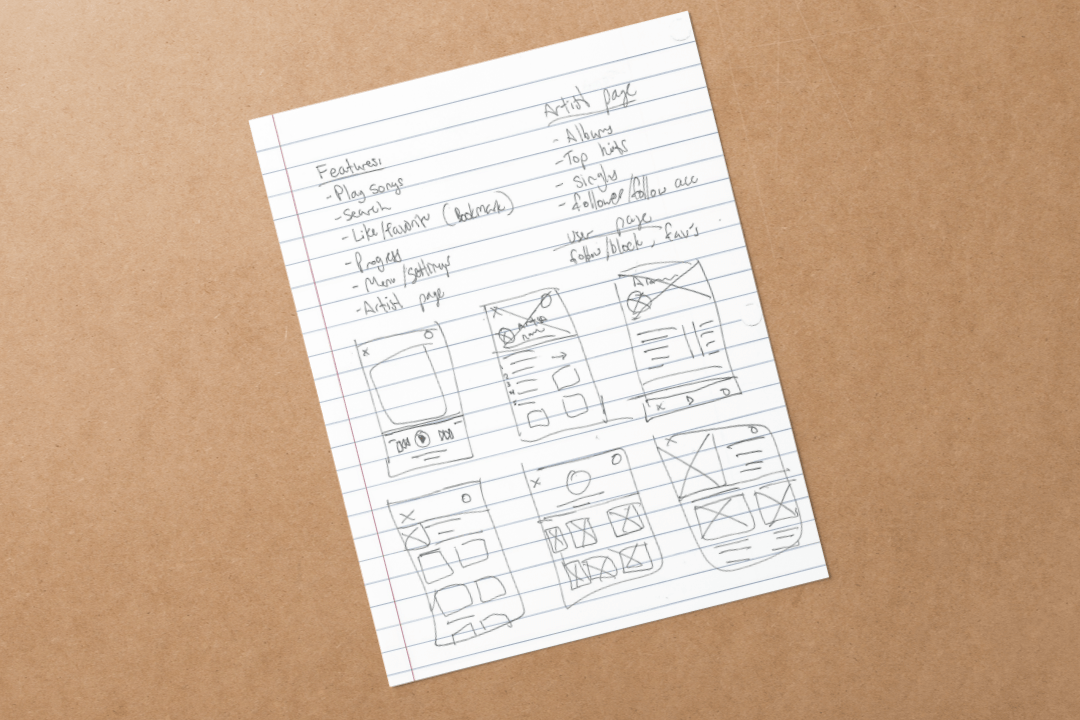 Features:
- Play songs
- Search
- Like/favorite (Bookmark)
- Progress
- Menu/settings
- Artist page
Artist page
- Albums
- Top hits
- Singles
- follower/follow acc
User page
follow/block, fav's
Artist name